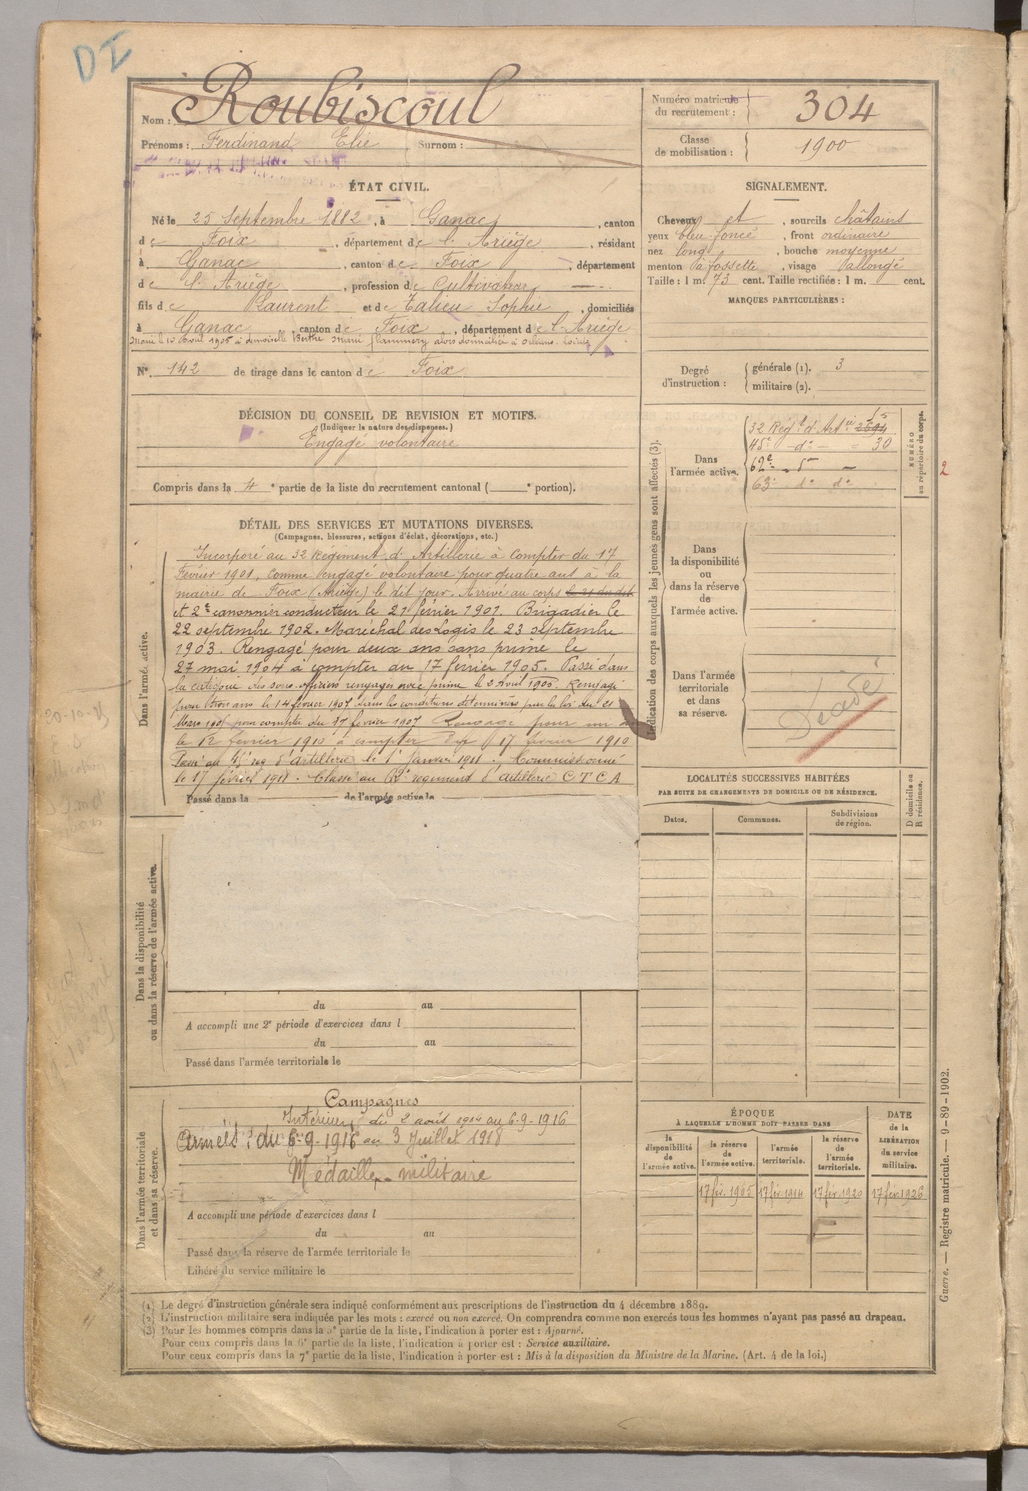 DI
Nom : Roubiscoul
Prénoms : Ferdinand Elie Surnom :
Numéro matricule du recrutement : 304
Classe de mobilisation : 1900
ÉTAT CIVIL.
Né le 25 Septembre 1882, à Ganac, canton
de Foix, département de l'Ariège, résidant
à Ganac, canton de Foix, département
de l'Ariège, profession de Cultivateur
fils de Laurent et de Talieu Sophie, domiciliés
à Ganac, canton de Foix, département de l'Ariège
Marié le 10 Avril 1905 à demoiselle Berthe Marie alors domiciliée à Orléans. Loiret
N° 142 de tirage dans le canton de Foix
SIGNALEMENT.
Cheveux et, sourcils châtains
yeux bleu foncé, front ordinaire
nez long, bouche moyenne
menton à fossette, visage allongé
Taille : 1 m. 73 cent. Taille rectifiée : 1 m. cent.
MARQUES PARTICULIÈRES :
Degré d'instruction :
générale (1). 3
militaire (2).
DÉCISION DU CONSEIL DE REVISION ET MOTIFS.
(Indiquer la nature des dispenses.)
Engagé volontaire
Compris dans la 4e partie de la liste du recrutement cantonal ( e portion).
Indication des corps auxquels les jeunes gens sont affectés (3).
Dans l'armée active.
32 Régt d'Artie
45e do 30
62e do
63e do do
NUMÉRO au répertoire du corps.
2
Dans la disponibilité ou dans la réserve de l'armée active.
Dans l'armée territoriale et dans sa réserve.
Décédé
DÉTAIL DES SERVICES ET MUTATIONS DIVERSES.
(Campagnes, blessures, actions d'éclat, décorations, etc.)
Dans l'armée active.
Incorporé au 32 Régiment d'Artillerie à compter du 17
Février 1901, comme engagé volontaire pour quatre ans à la
mairie de Foix (Ariège) le dit jour. Arrivé au corps
et 2e canonnier conducteur le 21 février 1901. Brigadier le
22 septembre 1902. Maréchal des Logis le 23 septembre
1903. Rengagé pour deux ans sans prime le
27 mai 1904 à compter du 17 février 1905. Passé dans
la catégorie des sous-officiers rengagés avec prime le 2 Avril 1905. Rengagé
pour trois ans le 14 février 1907 dans les conditions déterminées par la loi du 21
Mars 1905 pour compter du 17 février 1907. Rengagé pour un
le 12 février 1910 à compter du 17 février 1910
Passé au 45 rég d'artillerie le 1er Janvier 1911. Commissionné
le 17 février 1911. Classé au 62e régiment d'artillerie C T C A
Passé dans la de l'armée active le
Dans la disponibilité ou dans la réserve de l'armée active.
du au
A accompli une 2e période d'exercices dans l
du au
Passé dans l'armée territoriale le
LOCALITÉS SUCCESSIVES HABITÉES
PAR SUITE DE CHANGEMENTS DE DOMICILE OU DE RÉSIDENCE.
Dates. Communes. Subdivisions de région. D domicile ou R résidence.
Dans l'armée territoriale et dans sa réserve.
Campagnes
Intérieur du 2 août 1914 au 6-9-1916
Armées : du 6-9-1916 au 3 Juillet 1918
Médaille militaire
A accompli une période d'exercices dans l
du au
Passé dans la réserve de l'armée territoriale le
Libéré du service militaire le
ÉPOQUE
À LAQUELLE L'HOMME DOIT PASSER DANS
la disponibilité de l'armée active.
la réserve de l'armée active.
l'armée territoriale.
la réserve de l'armée territoriale.
DATE de la LIBÉRATION du service militaire.
17 fév. 1905 17 fév 1914 17 fév 1920 17 fév 1926
(1) Le degré d'instruction générale sera indiqué conformément aux prescriptions de l'instruction du 4 décembre 1889.
(2) L'instruction militaire sera indiquée par les mots : exercé ou non exercé. On comprendra comme non exercés tous les hommes n'ayant pas passé au drapeau.
(3) Pour les hommes compris dans la 5e partie de la liste, l'indication à porter est : Ajourné.
Pour ceux compris dans la 6e partie de la liste, l'indication à porter est : Service auxiliaire.
Pour ceux compris dans la 7e partie de la liste, l'indication à porter est : Mis à la disposition du Ministre de la Marine. (Art. 4 de la loi.)
Guerre. — Registre matricule. — 9-89-1902.